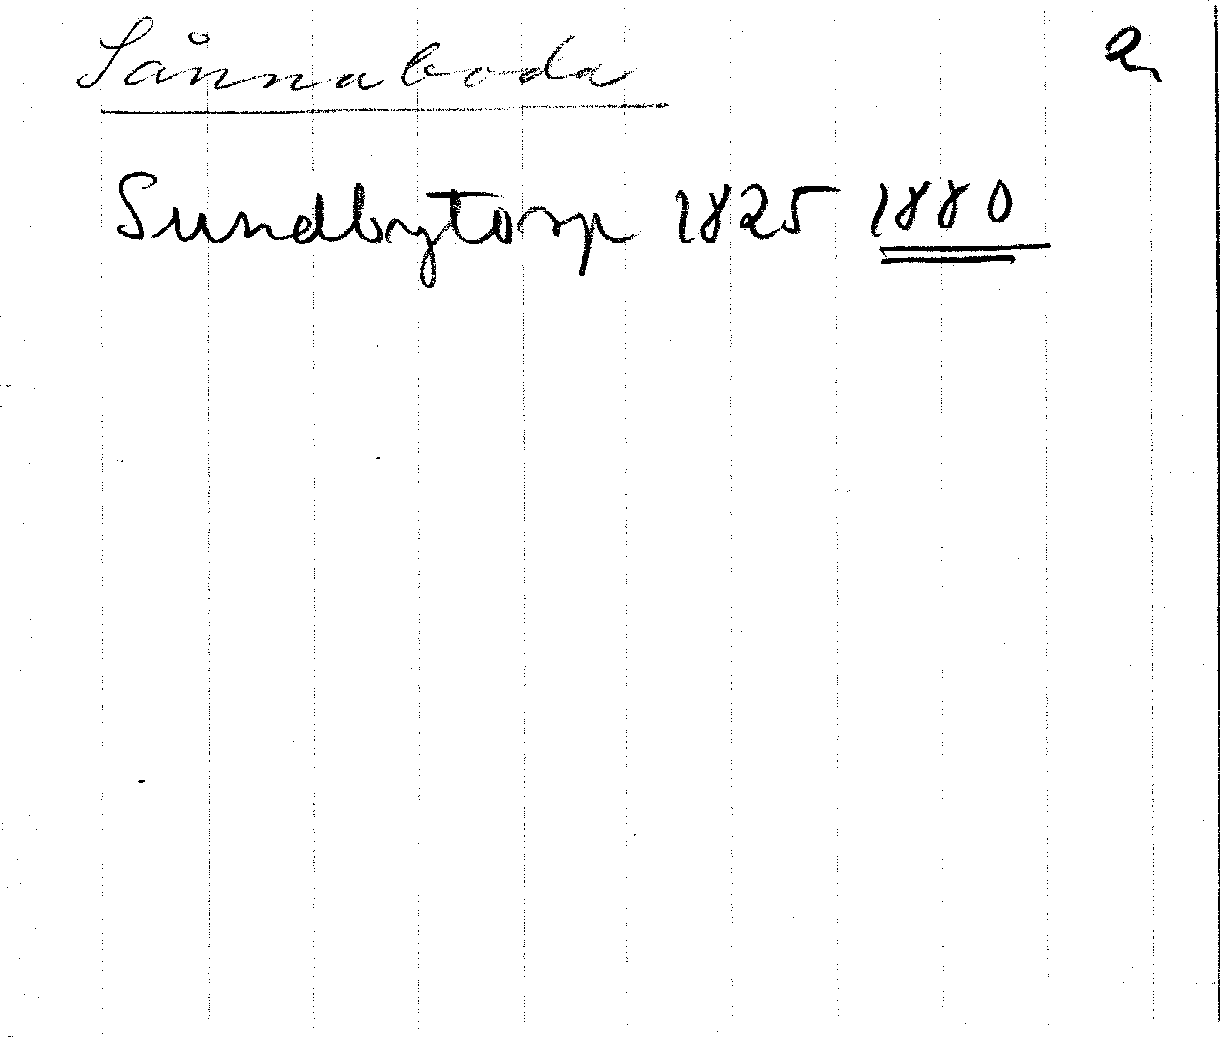 Sånnaboda
Sundbytorp 1825 1880